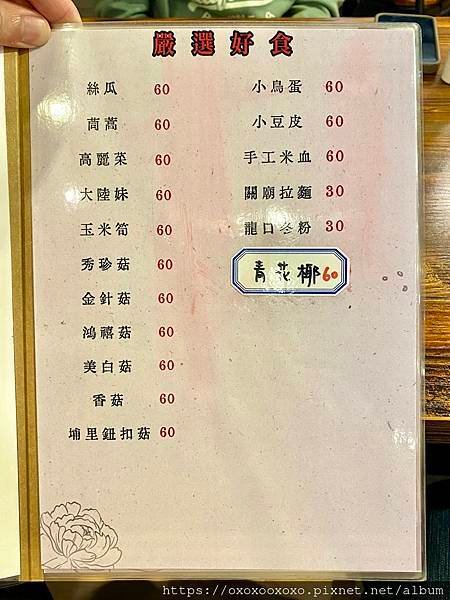 嚴選好食
絲瓜 60
茼蒿 60
高麗菜 60
大陸妹 60
玉米筍 60
秀珍菇 60
金針菇 60
鴻禧菇 60
美白菇 60
香菇 60
埔里鈕扣菇 60
小鳥蛋 60
小豆皮 60
手工米血 60
關廟拉麵 30
龍口冬粉 30
青花椰 60
https://oxoxooxoxo.pixnet.net/album